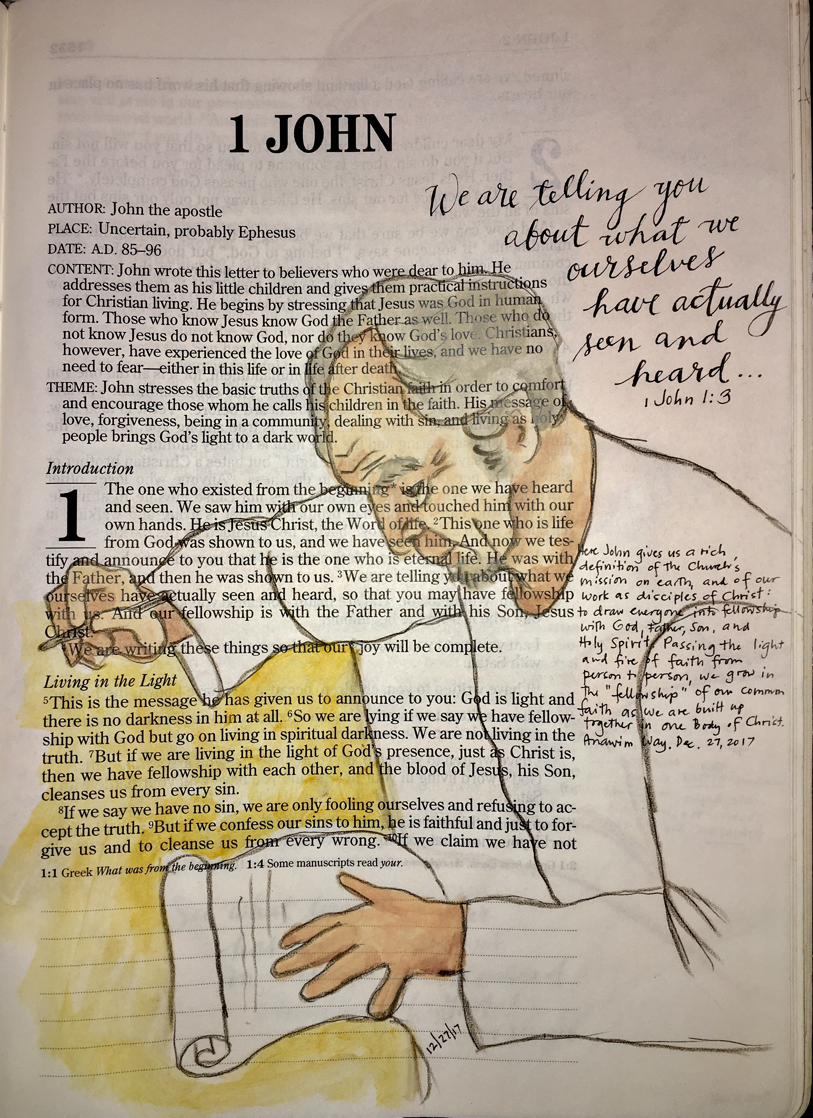 1 JOHN
We are telling you
about what we
ourselves
have actually
seen and
heard...
1 John 1:3
AUTHOR: John the apostle
PLACE: Uncertain, probably Ephesus
DATE: A.D. 85–96
CONTENT: John wrote this letter to believers who were dear to him. He
addresses them as his little children and gives them practical instructions
for Christian living. He begins by stressing that Jesus was God in human
form. Those who know Jesus know God the Father as well. Those who do
not know Jesus do not know God, nor do they know God's love. Christians,
however, have experienced the love of God in their lives, and we have no
need to fear—either in this life or in life after death.
THEME: John stresses the basic truths of the Christian faith in order to comfort
and encourage those whom he calls his children in the faith. His message of
love, forgiveness, being in a community, dealing with sin, and living as holy
people brings God's light to a dark world.
Introduction
1 The one who existed from the beginning* is the one we have heard
and seen. We saw him with our own eyes and touched him with our
own hands. He is Jesus Christ, the Word of life. 2This one who is life
from God was shown to us, and we have seen him. And now we tes-
tify and announce to you that he is the one who is eternal life. He was with
the Father, and then he was shown to us. 3We are telling you about what we
ourselves have actually seen and heard, so that you may have fellowship
with us. And our fellowship is with the Father and with his Son, Jesus
Christ.
We are writing these things so that our* joy will be complete.
Living in the Light
5This is the message he has given us to announce to you: God is light and
there is no darkness in him at all. 6So we are lying if we say we have fellow-
ship with God but go on living in spiritual darkness. We are not living in the
truth. 7But if we are living in the light of God's presence, just as Christ is,
then we have fellowship with each other, and the blood of Jesus, his Son,
cleanses us from every sin.
8If we say we have no sin, we are only fooling ourselves and refusing to ac-
cept the truth. 9But if we confess our sins to him, he is faithful and just to for-
give us and to cleanse us from every wrong. 10If we claim we have not
1:1 Greek What was from the beginning. 1:4 Some manuscripts read your.
Here John gives us a rich
definition of the Church's
mission on earth, and of our
work as disciples of Christ:
to draw everyone into fellowship
with God, Father, Son, and
Holy Spirit. Passing the light
and fire of faith from
person to person, we grow in
the "fellowship" of our common
faith as we are built up
together in one Body of Christ.
Anawim Way, Dec. 27, 2017
12/27/17